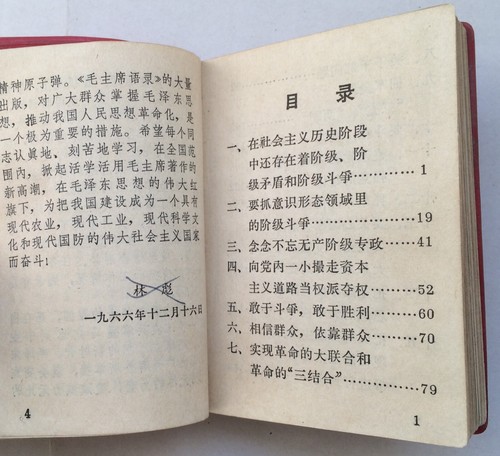 精神原子弹。《毛主席语录》的大量
出版，对广大群众掌握毛泽东思
想，推动我国人民思想革命化，是
一个极为重要的措施。希望每个同
志认真地、刻苦地学习，在全国范
围内，掀起活学活用毛主席著作的
新高潮，在毛泽东思想的伟大红
旗下，为把我国建设成为一个具有
现代农业，现代工业，现代科学文
化和现代国防的伟大社会主义国家
而奋斗！
林彪
一九六六年十二月十六日
4
目录
一、在社会主义历史阶段
中还存在着阶级、阶
级矛盾和阶级斗爭……………1
二、要抓意识形态领域里
的阶级斗爭……………19
三、念念不忘无产阶级专政……41
四、向党内一小撮走资本
主义道路当权派夺权………52
五、敢于斗爭，敢于胜利………60
六、相信群众，依靠群众………70
七、实现革命的大联合和
革命的“三结合”……………79
1